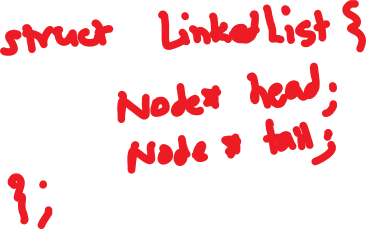 struct LinkedList {
Node* head;
Node * tail;
};